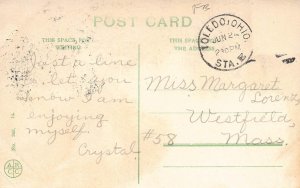 POST CARD
THIS SPACE FOR WRITING
THE ADDRESS
TOLEDO, OHIO
JUN 2
230PM
STA. E
Just a line
to let you
know I am
enjoying
myself.
Crystal.
Miss Margaret
Lorenz
Westfield,
#58
Mass.